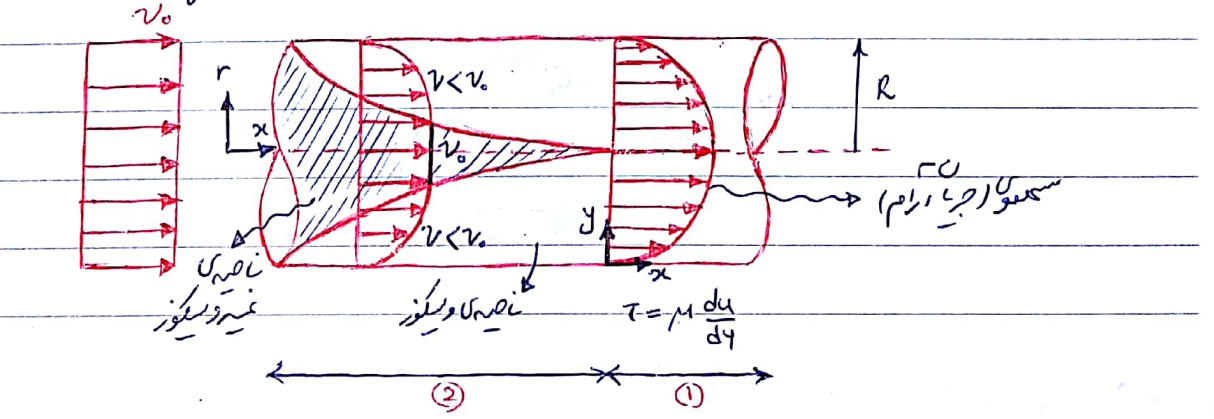 v₀
r
x
v < v₀
v₀
v < v₀
R
سهموی (جریان آرام)
y
x
ناحیه‌ی
غیر ویسکوز
ناحیه‌ی ویسکوز
τ = μ du/dy
②
①